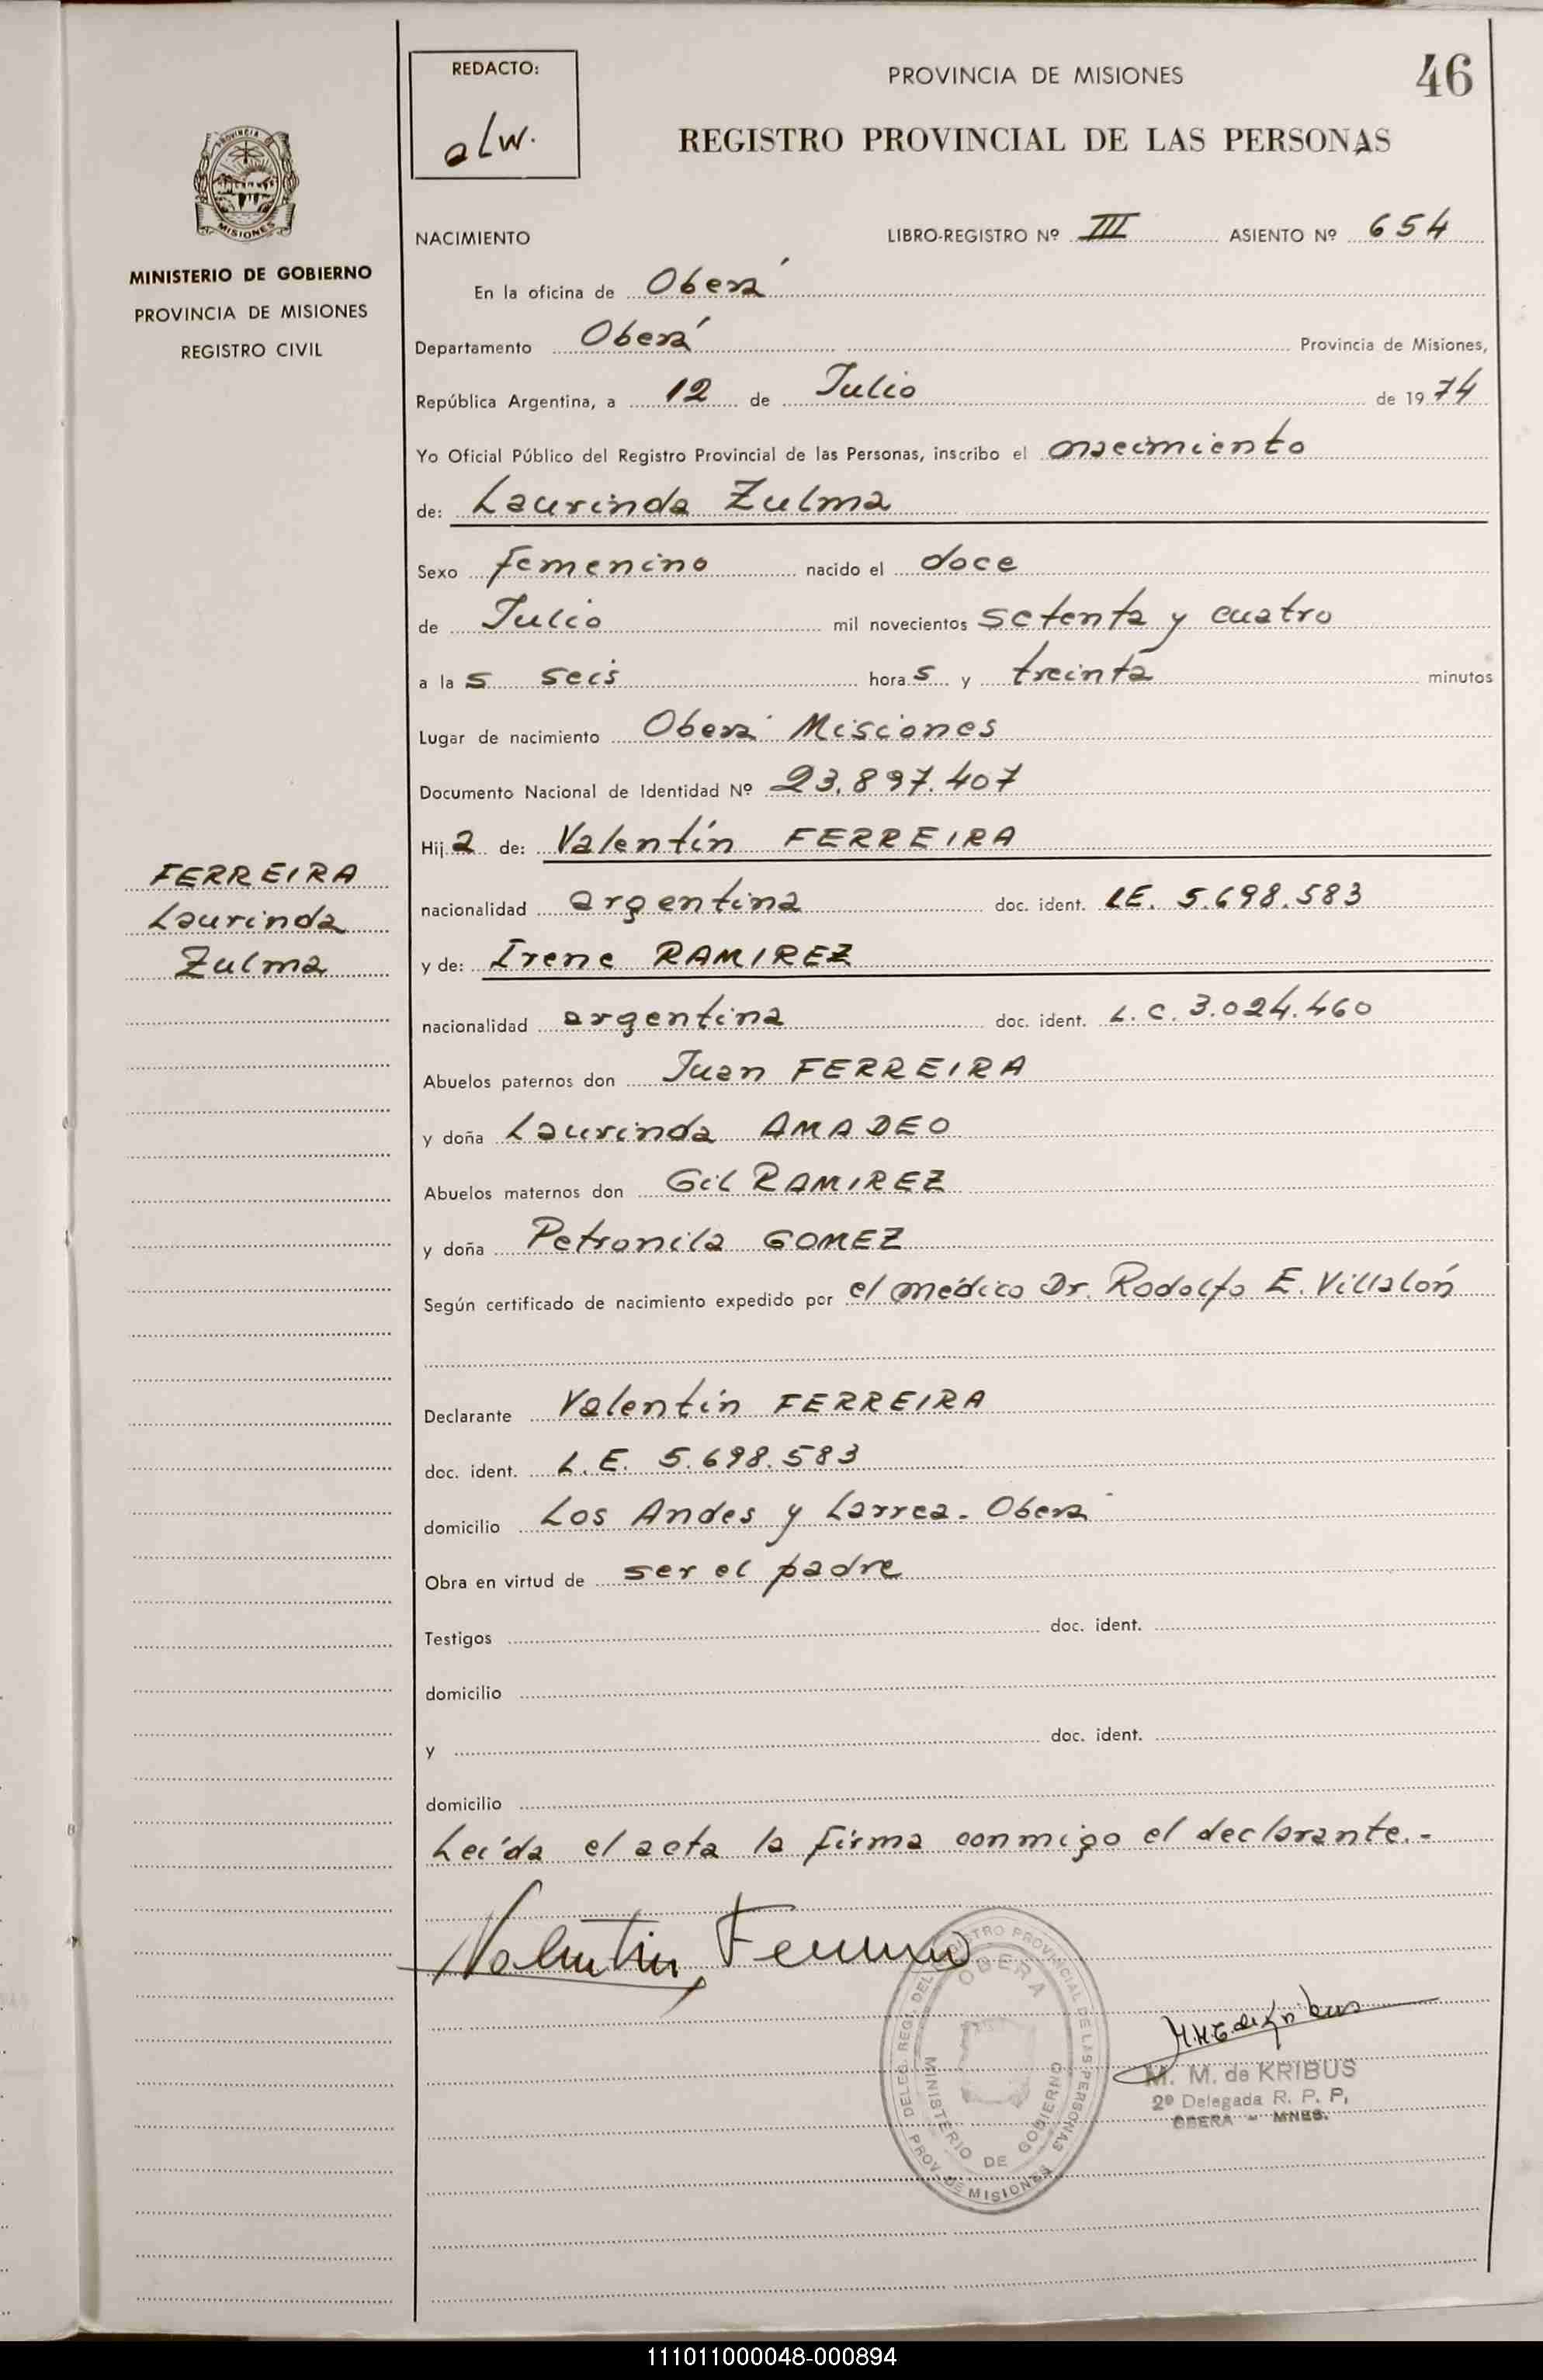 REDACTO:
alw.
PROVINCIA DE MISIONES
46
REGISTRO PROVINCIAL DE LAS PERSONAS
PROVINCIA DE
MISIONES
MINISTERIO DE GOBIERNO
PROVINCIA DE MISIONES
REGISTRO CIVIL
NACIMIENTO LIBRO-REGISTRO Nº III ASIENTO Nº 654
En la oficina de Oberá
Departamento Oberá Provincia de Misiones,
República Argentina, a 12 de Julio de 1974
Yo Oficial Público del Registro Provincial de las Personas, inscribo el nacimiento
de: Laurinda Zulma
Sexo femenino nacido el doce
de Julio mil novecientos setenta y cuatro
a las seis horas y treinta minutos
Lugar de nacimiento Oberá Misiones
Documento Nacional de Identidad Nº 23.897.407
Hija de: Valentín FERREIRA
FERREIRA
Laurinda
Zulma
nacionalidad argentina doc. ident. LE. 5.698.583
y de: Irene RAMIREZ
nacionalidad argentina doc. ident. L.C. 3.024.460
Abuelos paternos don Juan FERREIRA
y doña Laurinda AMADEO
Abuelos maternos don Gil RAMIREZ
y doña Petronila GOMEZ
Según certificado de nacimiento expedido por el médico Dr. Rodolfo E. Villalón
Declarante Valentín FERREIRA
doc. ident. L.E. 5.698.583
domicilio Los Andes y Larrea. Oberá
Obra en virtud de ser el padre
Testigos doc. ident.
domicilio
y doc. ident.
domicilio
Leída el acta la firma conmigo el declarante.-
Valentin Ferreira
DELEG. REG. DEL REGISTRO PROVINCIAL DE LAS PERSONAS
OBERA
MINISTERIO DE GOBIERNO
PROV. DE MISIONES
M. M. de KRIBUS
2º Delegada R. P. P,
OBERA - MNES.
111011000048-000894